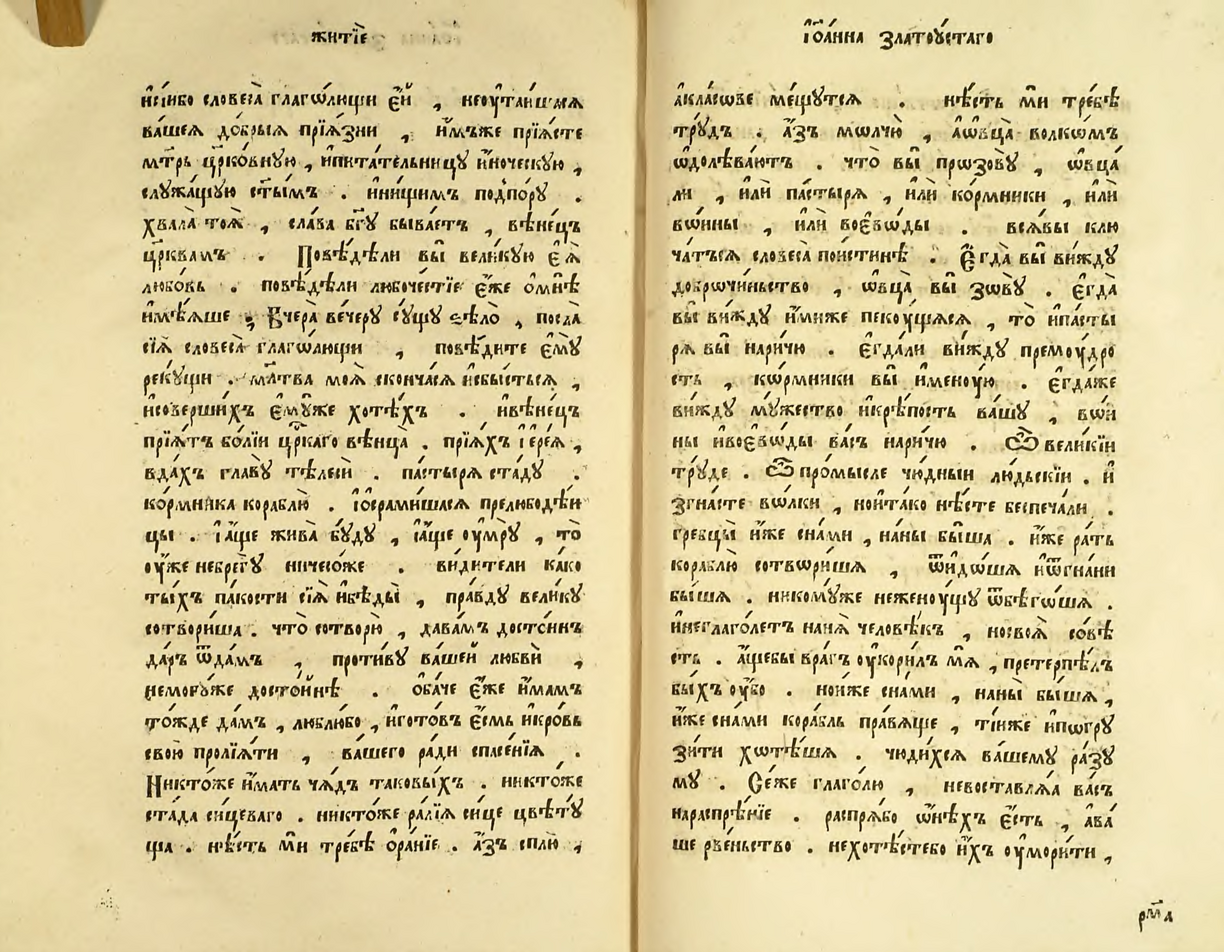 житїе
нсі́ибо словеса̀ глаго́лющи е҆́й , неоу҆таи́шмѧ
ва́шеѧ до́брыѧ прїѧ́зни , и҆́мъже прїѧ́сте
мт҃рь цр҃ко́вную , ипита́тельницꙋ и҆́ноческую ,
слꙋжа́щую ст҃ы́мъ . ини́щимъ подпо́рꙋ .
хвала̀ тоѧ̀ , сла́ва бг҃ꙋ быва́етъ , вѣне́цъ
цр҃ква́мъ . Повѣ́дѣли вы̀ вели́кую е҆ѧ̀
любо́вь . повѣ́дѣли любоче́стїе е҆́же ѡ҆мнѣ̀
и҆мѣ́ѧше . Вчера̀ ве́черꙋ сꙋ́щꙋ ѕѣлѡ̀ , посла̀
сїѧ̀ словеса̀ глаго́лющи , повѣ́дите е҆мꙋ̀
рекꙋ́щи . мл҃тва моѧ̀ сконча́сѧ исбы́стьсѧ ,
исоверши́хъ е҆мꙋ́же хотѣ́хъ . ивѣне́цъ
прїѧ́тъ бо́лїи цр҃каго вѣнца̀ . прїѧ́хъ і҆ере́ѧ ,
вда́хъ главꙋ̀ тѣ́леси . па́стырѧ ста́дꙋ .
ко́рмника кораблю̀ . іѻсрами́шасѧ прелюбодѣ́и
цы . і҆а́ще жива̀ бꙋ́дꙋ , і҆а́ще оу҆мрꙋ̀ , то̀
оу҆же небрегꙋ̀ ничесо́же . ви́дители ка́ко
ты́хъ па́кости сїѧ̀ ибѣ́ды , пра́вдꙋ ве́ликꙋ
сотвори́ша . что̀ сотворю̀ , дава́мъ досто́инъ
да́ръ ѿда́мъ , проти́вꙋ ва́шей любвѝ ,
немогꙋ́же досто́йнѣ . ѻ҆ба́че е҆́же и҆́мамъ
то́жде да́мъ , люблю́бо , игото́въ е҆́смь икро́вь
свою̀ пролїѧ́ти , ва́шего ра́ди спасе́нїѧ .
Никто́же и҆́мать ча́дъ таковы́хъ . никто́же
ста́да сицева́го . никто́же ра́лїѧ си́це цвѣтꙋ́
ща . нѣ́сть мѝ тре́бѣ ѻ҆ра́нїе . а҆́зъ сплю̀ ,
і҆ѻа́нна златоꙋ́стаго
акла́сѡве ме́щꙋтсѧ . нѣ́сть мѝ тре́бѣ
трꙋ́дъ . а҆́зъ мѡлчю̀ , аѡ҆вца̀ волкѡ́мъ
ѡ҆долѣва́ютъ . что̀ вы̀ прѡзовꙋ̀ , ѡ҆вца̀
ли , и҆лѝ па́стырѧ , и҆лѝ ко́рмники , и҆лѝ
вѡ́ины , и҆лѝ воевѡ́ды . всѧ́вы клю
ча́тьсѧ словеса̀ поистинѣ̀ . Е҆гда̀ вы̀ ви́ждꙋ
добрѡчи́ньство , ѡ҆вца̀ вы̀ зѡвꙋ̀ . е҆гда̀
вы̀ ви́ждꙋ и҆́миже пекоꙋ́щаѧсѧ , то̀ ипа́сты
рѧ вы̀ нари́чю . е҆гда́ли ви́ждꙋ премоу́дро
сть , кѡ́рмники вы̀ и҆мено́ую . е҆гда́же
ви́ждꙋ мꙋ́жество икрѣ́пость ва́шꙋ , вѡ́и
ны ивоевѡ́ды ва́съ нари́чю . Ѽ вели́кїи
трꙋ́де . ѽ про́мысле чю́дныи лю́дьскїи . и҆
згна́сте вѡ́лки , ноита́ко нѣ́сте беспеча́ли .
гребцы̀ и҆́же сна́ми , на́ны бы́ша . и҆́же ра́ть
кораблю̀ сотвѡри́шѧ , ѿидѡ́шѧ иѿгна́ни
бы́шѧ . никомꙋ́же неженоꙋ́щꙋ ѿбѣго́шѧ .
инеглаго́летъ на́нѧ человѣ́къ , носвоѧ̀ со́вѣ
сть . а҆́щебы вра́гъ оу҆кори́лъ мѧ̀ , претерпѣ́лъ
бы́хъ оу҆́бо . нои́же сна́ми , на́ны бы́шѧ ,
и҆́же сна́ми кора́бль пра́вѧще , ті́иже ипѡгрꙋ
зи́ти хѡтѣ́шѧ . чюди́хсѧ ва́шемꙋ ра́зꙋ
мꙋ . Се́же глаго́лю , невоставлѧ́ѧ ва́съ
нараспрѣ́нїе . распрѧ́бо ѡ҆нѣ́хъ е҆́сть , ава́
ше рве́ньство . нехотѣ́стебо и҆́хъ оу҆мори́ти ,
рм҃а